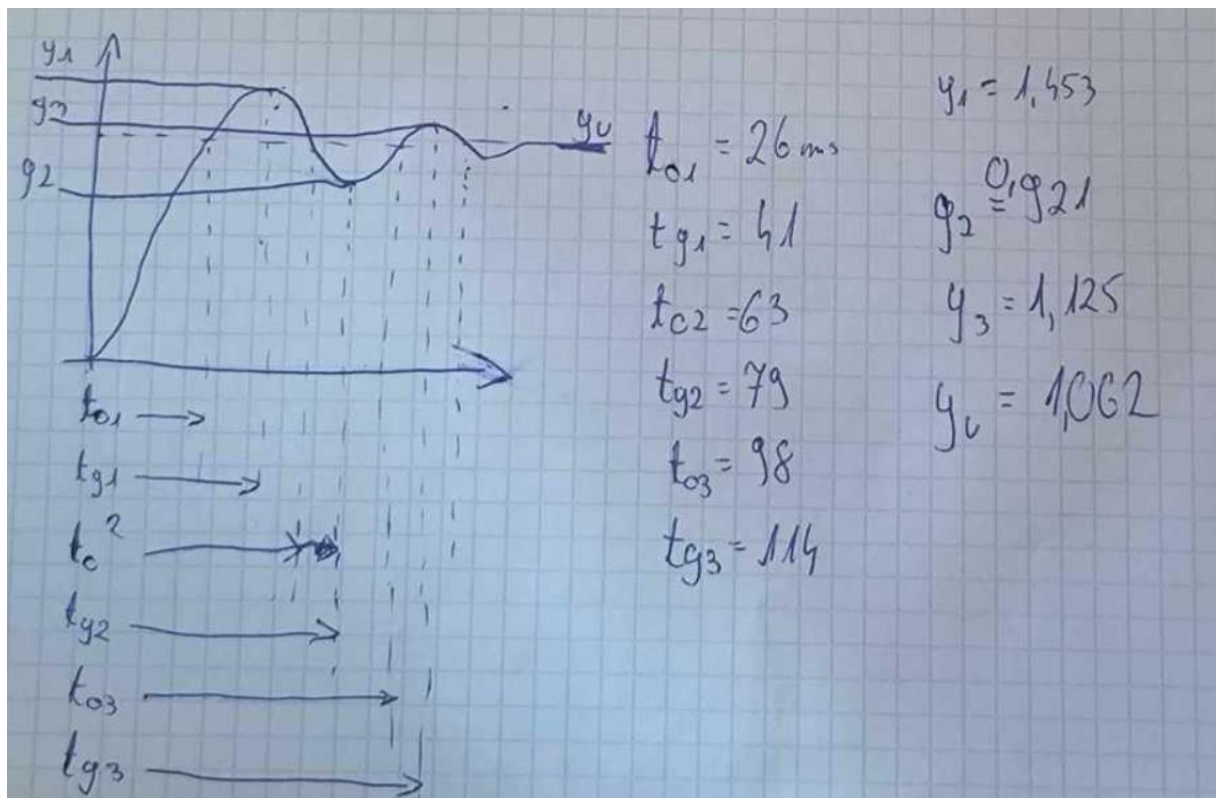 y1
y3
yu
y2
to1
tg1
to2
ty2
to3
tg3
to1 = 26 ms
tg1 = 41
tc2 = 63
ty2 = 79
to3 = 98
tg3 = 114
y1 = 1,453
y2 = 0,921
y3 = 1,125
yu = 1,062